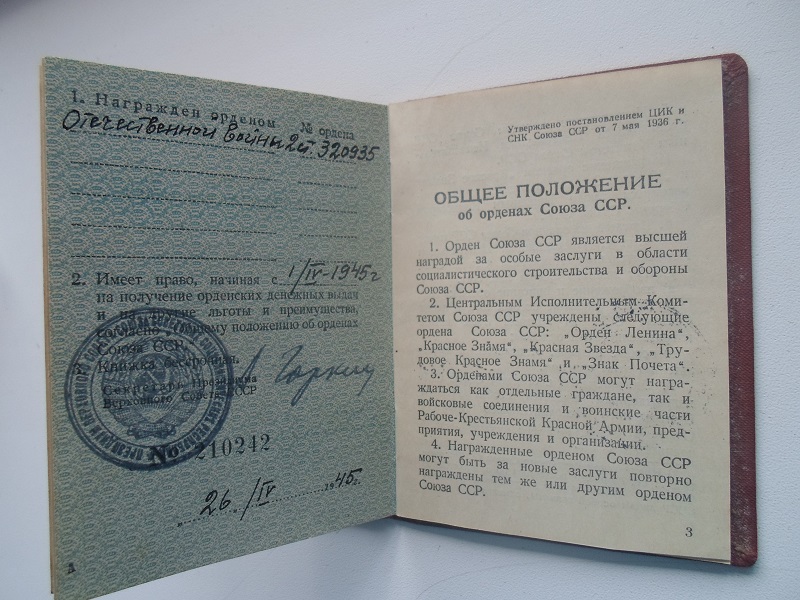 1. Награжден орденом № ордена
Отечественной войны 2 ст. 320935
2. Имеет право, начиная с 1/IV-1945 г
на получение орденских денежных выдач
и на другие льготы и преимущества,
согласно Общему положению об орденах
Союза ССР.
3. Книжка бессрочная.
Секретарь Президиума
Верховного Совета СССР
А Горкин
№ 210242
„ 26 „ /IV 1945 г.
Утверждено постановлением ЦИК и
СНК Союза ССР от 7 мая 1936 г.
ОБЩЕЕ ПОЛОЖЕНИЕ
об орденах Союза ССР.
1. Орден Союза ССР является высшей
наградой за особые заслуги в области
социалистического строительства и обороны
Союза ССР.
2. Центральным Исполнительным Комитетом
Союза ССР учреждены следующие
ордена Союза ССР: „Орден Ленина",
„Красное Знамя", „Красная Звезда", „Трудовое
Красное Знамя" и „Знак Почета".
3. Орденами Союза ССР могут награждаться
как отдельные граждане, так и
войсковые соединения и воинские части
Рабоче-Крестьянской Красной Армии, предприятия,
учреждения и организации.
4. Награжденные орденом Союза ССР
могут быть за новые заслуги повторно
награждены тем же или другим орденом
Союза ССР.
3